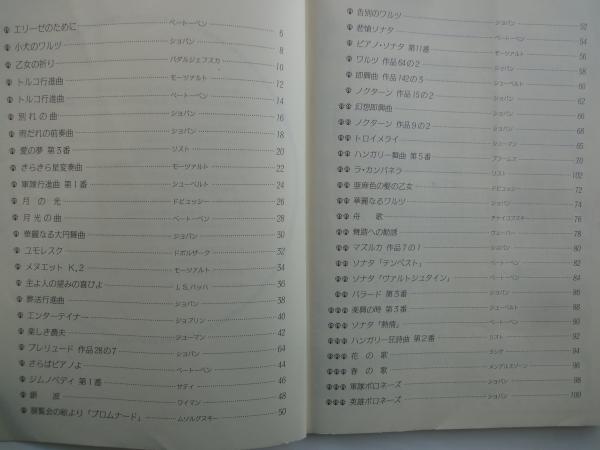 エリーゼのために ベートーベン 6
小犬のワルツ ショパン 8
乙女の祈り バダルジェフスカ 10
トルコ行進曲 モーツァルト 12
トルコ行進曲 ベートーベン 14
別れの曲 ショパン 16
雨だれの前奏曲 ショパン 18
愛の夢 第3番 リスト 20
きらきら星変奏曲 モーツァルト 22
軍隊行進曲 第1番 シューベルト 24
月の光 ドビュッシー 26
月光の曲 ベートーベン 28
華麗なる大円舞曲 ショパン 30
ユモレスク ドボルザーク 32
メヌエット K.2 モーツァルト 34
主よ人の望みの喜びよ J.S.バッハ 36
葬送行進曲 ショパン 38
エンターテイナー ジョプリン 40
楽しき農夫 シューマン 42
プレリュード 作品28の7 ショパン 64
さらばピアノよ ベートーベン 44
ジムノペティ 第1番 サティ 46
銀波 ワイマン 48
展覧会の絵より「プロムナード」 ムソルグスキー 50
告別のワルツ ショパン 52
悲愴ソナタ ベートーベン 54
ピアノ・ソナタ 第11番 モーツァルト 56
ワルツ 作品64の2 ショパン 58
即興曲 作品142の3 シューベルト 60
ノクターン 作品15の2 ショパン 62
幻想即興曲 ショパン 66
ノクターン 作品9の2 ショパン 68
トロイメライ シューマン 65
ハンガリー舞曲 第5番 ブラームス 70
ラ・カンパネラ リスト 102
亜麻色の髪の乙女 ドビュッシー 72
華麗なるワルツ ショパン 74
舟歌 チャイコフスキー 76
舞踏への勧誘 ウェーバー 78
マズルカ 作品7の1 ショパン 80
ソナタ「テンペスト」 ベートーベン 82
ソナタ「ヴァルトシュタイン」 ベートーベン 84
バラード 第3番 ショパン 86
楽興の時 第3番 シューベルト 88
ソナタ「熱情」 ベートーベン 90
ハンガリー狂詩曲 第2番 リスト 92
花の歌 ランゲ 94
春の歌 メンデルスゾーン 96
軍隊ポロネーズ ショパン 98
英雄ポロネーズ ショパン 100